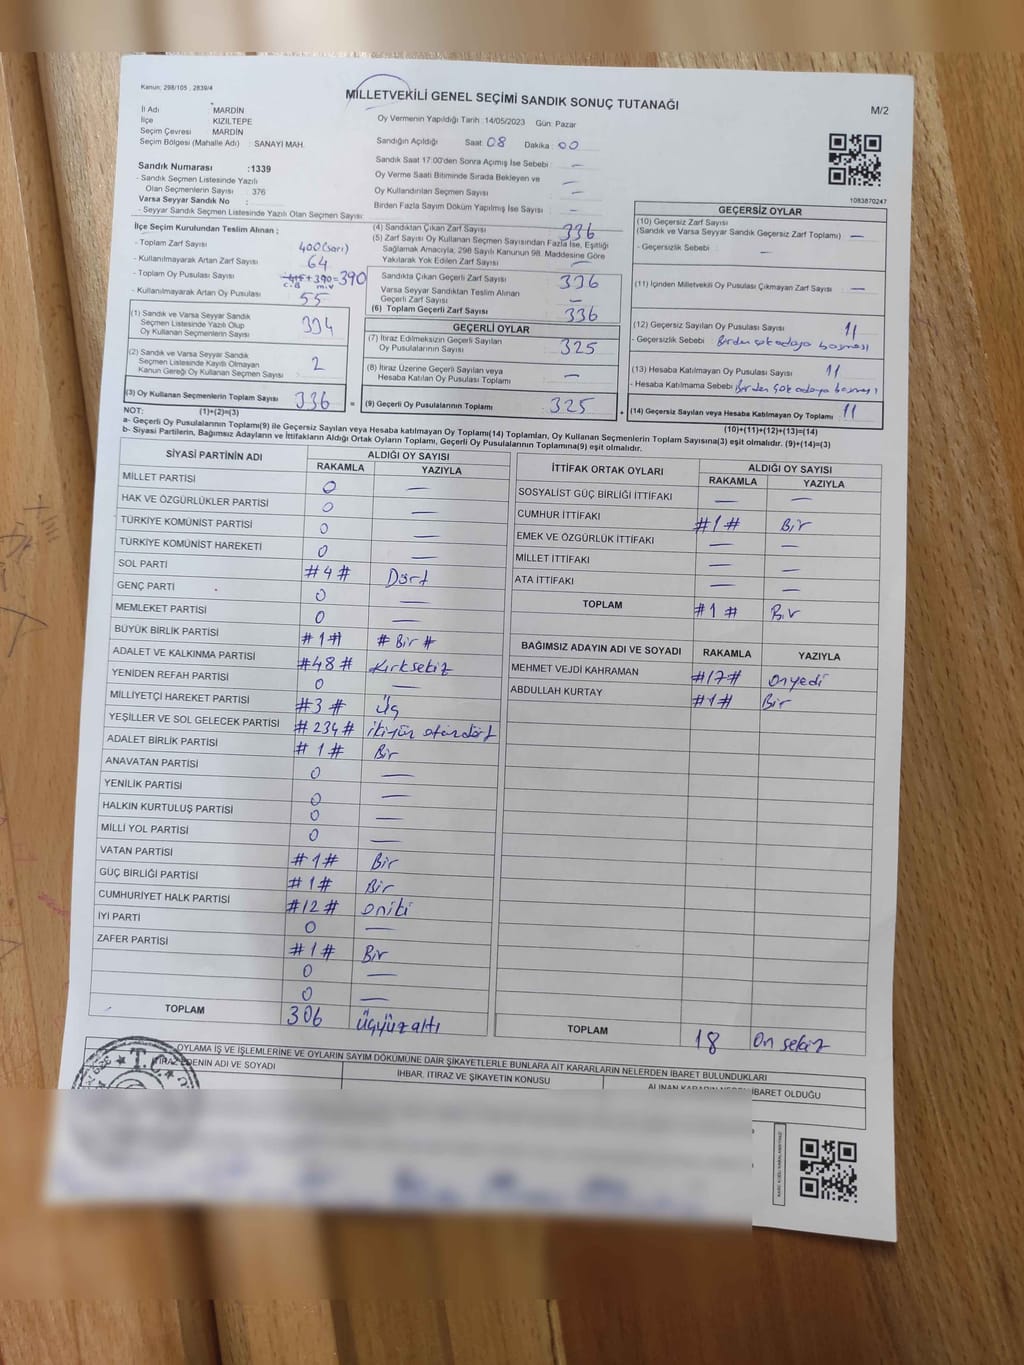 Kanun: 298/105 , 2839/4
MİLLETVEKİLİ GENEL SEÇİMİ SANDIK SONUÇ TUTANAĞI
M/2
İl Adı MARDİN
İlçe KIZILTEPE
Seçim Çevresi MARDİN
Seçim Bölgesi (Mahalle Adı) : SANAYİ MAH.
Oy Vermenin Yapıldığı Tarih :14/05/2023 Gün: Pazar
Sandığın Açıldığı Saat: 08 Dakika : 00
Sandık Saat 17:00'den Sonra Açımış İse Sebebi : —
Oy Verme Saati Bitiminde Sırada Bekleyen ve
Oy Kullandırılan Seçmen Sayısı : —
Birden Fazla Sayım Döküm Yapılmış İse Sayısı : —
1083870247
Sandık Numarası :1339
- Sandık Seçmen Listesinde Yazılı
Olan Seçmenlerin Sayısı : 376
Varsa Seyyar Sandık No :
- Seyyar Sandık Seçmen Listesinde Yazılı Olan Seçmen Sayısı:
İlçe Seçim Kurulundan Teslim Alınan ;
- Toplam Zarf Sayısı : 400 (sarı)
- Kullanılmayarak Artan Zarf Sayısı : 64
- Toplam Oy Pusulası Sayısı : +390=390
C.B m.v
- Kullanılmayarak Artan Oy Pusulası : 55
(1) Sandık ve Varsa Seyyar Sandık
Seçmen Listesinde Yazılı Olup
Oy Kullanan Seçmenlerin Sayısı : 334
(2) Sandık ve Varsa Seyyar Sandık
Seçmen Listesinde Kayıtlı Olmayan
Kanun Gereği Oy Kullanan Seçmen Sayısı : 2
(3) Oy Kullanan Seçmenlerin Toplam Sayısı : 336
(1)+(2)=(3)
(4) Sandıktan Çıkan Zarf Sayısı : 336
(5) Zarf Sayısı Oy Kullanan Seçmen Sayısından Fazla İse, Eşitliği
Sağlamak Amacıyla, 298 Sayılı Kanunun 98. Maddesine Göre
Yakılarak Yok Edilen Zarf Sayısı : —
Sandıkta Çıkan Geçerli Zarf Sayısı : 336
Varsa Seyyar Sandıktan Teslim Alınan
Geçerli Zarf Sayısı : —
(6) Toplam Geçerli Zarf Sayısı : 336
GEÇERLİ OYLAR
(7) İtiraz Edilmeksizin Geçerli Sayılan
Oy Pusulalarının Sayısı : 325
(8) İtiraz Üzerine Geçerli Sayılan veya
Hesaba Katılan Oy Pusulası Toplamı : —
= (9) Geçerli Oy Pusulalarının Toplamı : 325
GEÇERSİZ OYLAR
(10) Geçersiz Zarf Sayısı
(Sandık ve Varsa Seyyar Sandık Geçersiz Zarf Toplamı) : —
- Geçersizlik Sebebi : —
(11) İçinden Milletvekili Oy Pusulası Çıkmayan Zarf Sayısı : —
(12) Geçersiz Sayılan Oy Pusulası Sayısı : 11
- Geçersizlik Sebebi : Birden çok adaya basması
(13) Hesaba Katılmayan Oy Pusulası Sayısı : 11
- Hesaba Katılmama Sebebi : Birden çok adaya basması
+ (14) Geçersiz Sayılan veya Hesaba Katılmayan Oy Toplamı : 11
(10)+(11)+(12)+(13)=(14)
NOT:
a- Geçerli Oy Pusulalarının Toplamı(9) ile Geçersiz Sayılan veya Hesaba katılmayan Oy Toplamı(14) Toplamları, Oy Kullanan Seçmenlerin Toplam Sayısına(3) eşit olmalıdır. (9)+(14)=(3)
b- Siyasi Partilerin, Bağımsız Adayların ve İttifakların Aldığı Ortak Oyların Toplamı, Geçerli Oy Pusulalarının Toplamına(9) eşit olmalıdır.
SİYASİ PARTİNİN ADI ALDIĞI OY SAYISI
RAKAMLA YAZIYLA
MİLLET PARTİSİ 0 —
HAK VE ÖZGÜRLÜKLER PARTİSİ 0 —
TÜRKİYE KOMÜNİST PARTİSİ 0 —
TÜRKİYE KOMÜNİST HAREKETİ 0 —
SOL PARTİ #4# Dört
GENÇ PARTİ 0 —
MEMLEKET PARTİSİ 0 —
BÜYÜK BİRLİK PARTİSİ #1# # Bir #
ADALET VE KALKINMA PARTİSİ #48# Kırksekiz
YENİDEN REFAH PARTİSİ 0 —
MİLLİYETÇİ HAREKET PARTİSİ #3# Üç
YEŞİLLER VE SOL GELECEK PARTİSİ #234# ikiyüz otuzdört
ADALET BİRLİK PARTİSİ #1# Bir
ANAVATAN PARTİSİ 0 —
YENİLİK PARTİSİ 0 —
HALKIN KURTULUŞ PARTİSİ 0 —
MİLLİ YOL PARTİSİ 0 —
VATAN PARTİSİ #1# Bir
GÜÇ BİRLİĞİ PARTİSİ #1# Bir
CUMHURİYET HALK PARTİSİ #12# oniki
İYİ PARTİ 0 —
ZAFER PARTİSİ #1# Bir
0 —
0 —
TOPLAM 306 Üçyüzaltı
İTTİFAK ORTAK OYLARI ALDIĞI OY SAYISI
RAKAMLA YAZIYLA
SOSYALİST GÜÇ BİRLİĞİ İTTİFAKI — —
CUMHUR İTTİFAKI #1# Bir
EMEK VE ÖZGÜRLÜK İTTİFAKI — —
MİLLET İTTİFAKI — —
ATA İTTİFAKI — —
TOPLAM #1# Bir
BAĞIMSIZ ADAYIN ADI VE SOYADI RAKAMLA YAZIYLA
MEHMET VEJDİ KAHRAMAN #17# onyedi
ABDULLAH KURTAY #1# Bir
TOPLAM 18 On sekiz
OYLAMA İŞ VE İŞLEMLERİNE VE OYLARIN SAYIM DÖKÜMÜNE DAİR ŞİKAYETLERLE BUNLARA AİT KARARLARIN NELERDEN İBARET BULUNDUKLARI
İTİRAZ EDENİN ADI VE SOYADI İHBAR, İTİRAZ VE ŞİKAYETİN KONUSU ALINAN KARARIN NEDEN İBARET OLDUĞU
T.C.